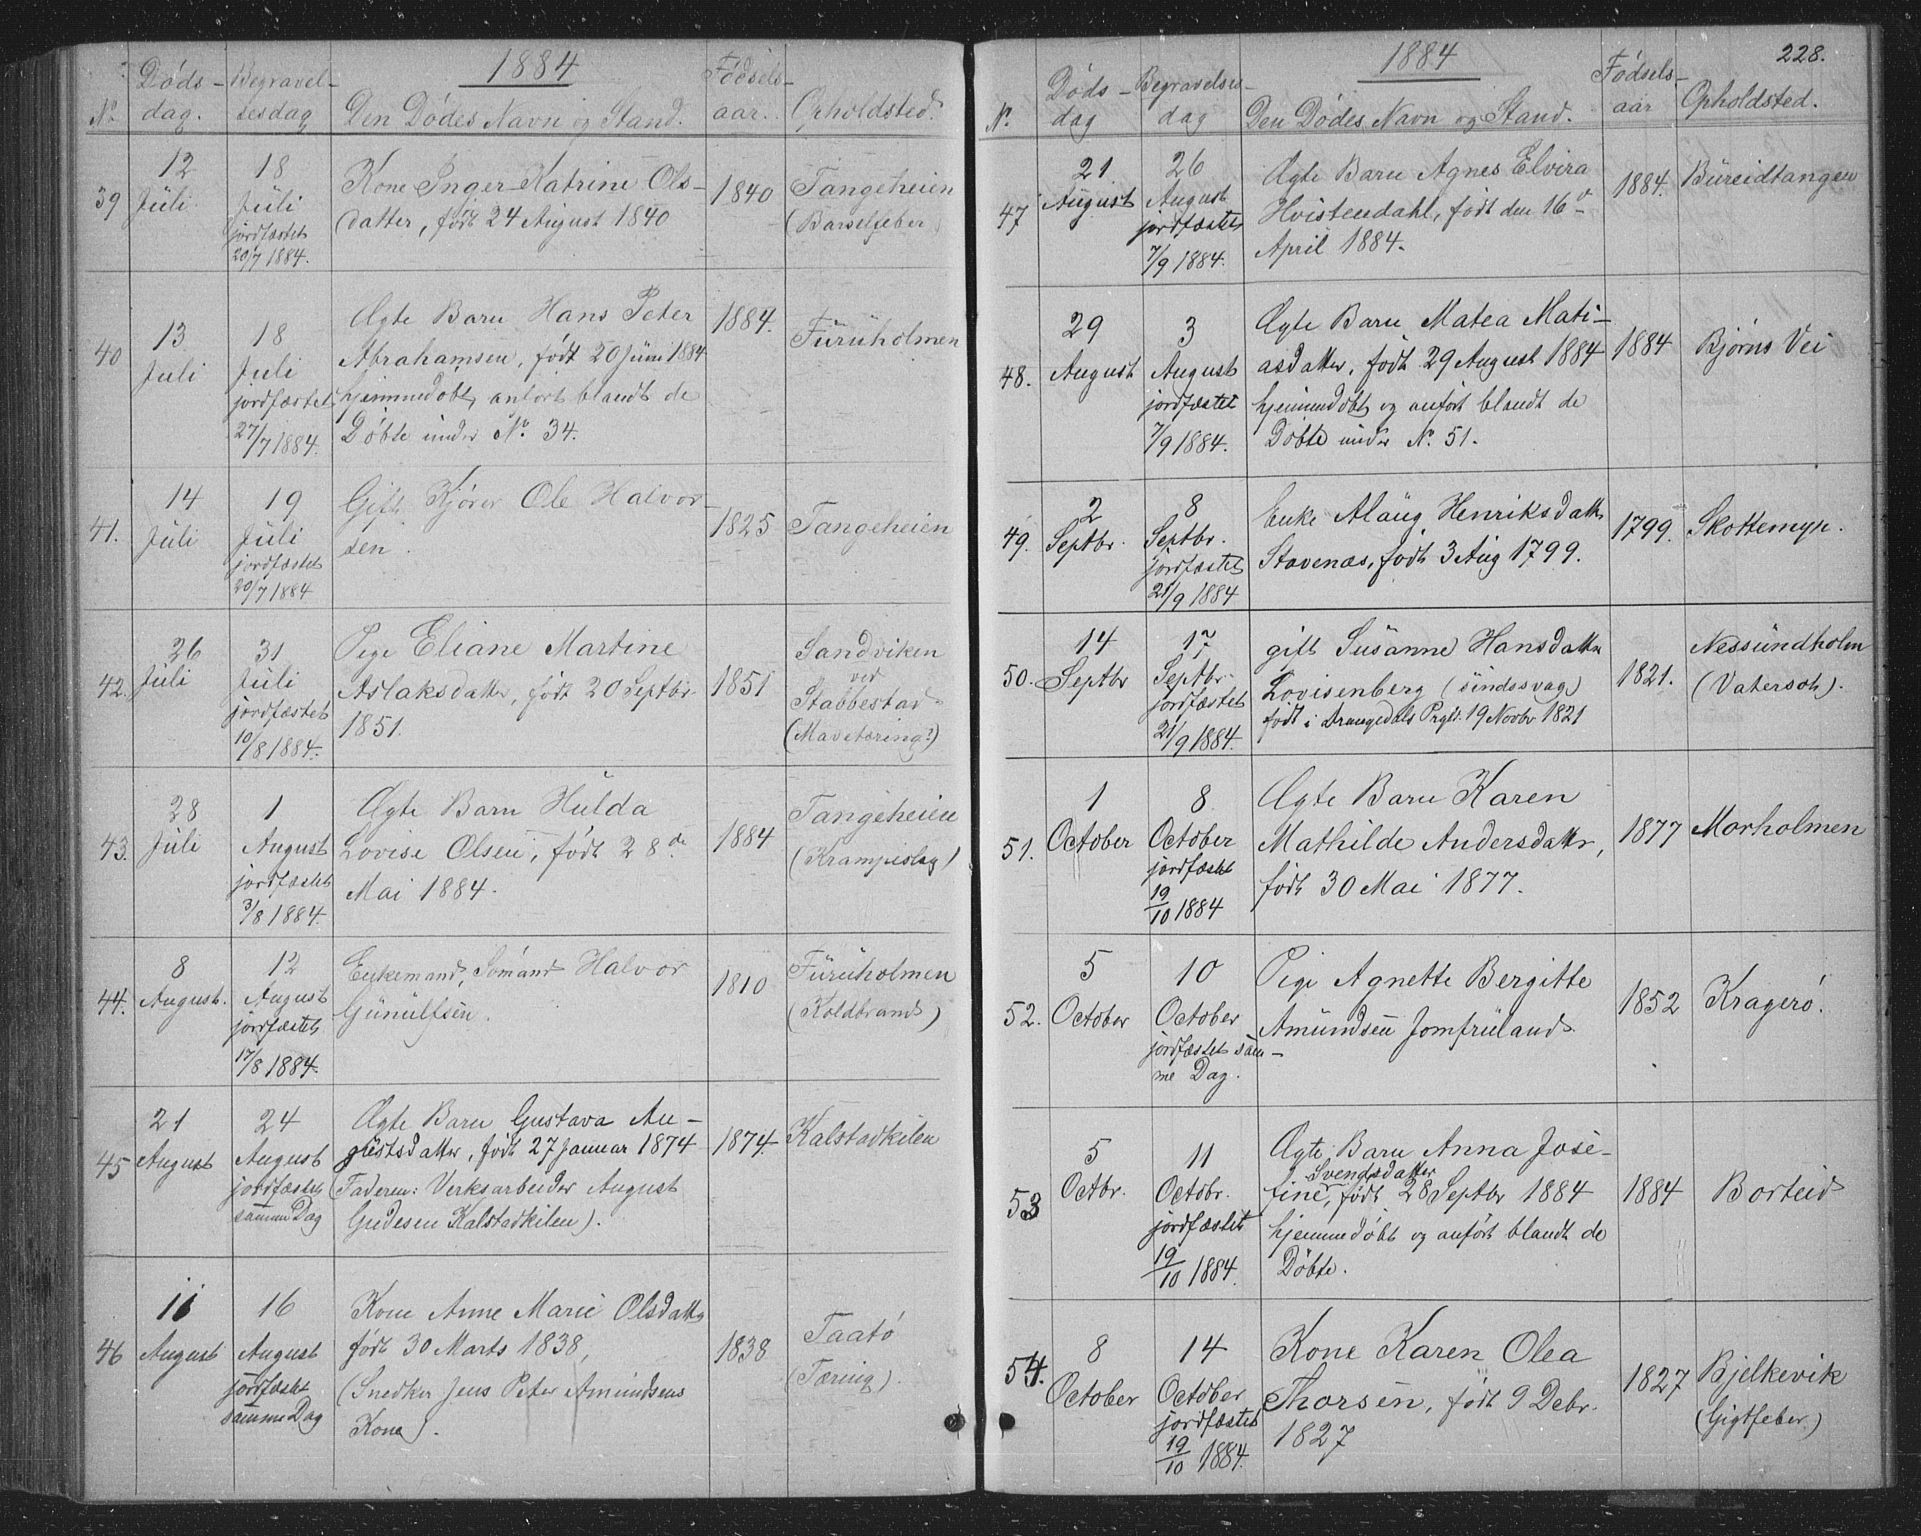 1884
No.
Døds-
dag.
Begravel-
sesdag
Den Dødes Navn og Stand.
Fødsels-
aar.
Opholdsted.
39
12
Juli
18
Juli
jordfæstet
20/7 1884.
Kone Inger Katrine Ols-
datter, født 24 August 1840
1840
Tangeheien
(Barselfeber)
40
13
Juli
18
Juli
jordfæstet
27/7 1884.
Ægte Barn Hans Peter
Abrahamsen, født 20 Juni 1884
hjemmedøbt, anført blandt de
Døbte under No. 34.
1884.
Furuholmen
41.
14
Juli
19
Juli
jordfæstet
20/7 1884
Gift Kjører Ole Halvor-
sen.
1825
Tangeheien
42.
26
Juli
31
Juli
jordfæstet
10/8 1884.
Pige Eliane Martine
Aslaksdatter, født 20 Septbr.
1851.
1851
Sandviken
ved
Stabbestad
(Mavetæring?)
43.
28
Juli
1
August
jordfæstet
3/8 1884.
Ægte Barn Hulda
Lovise Olsen, født 28de
Mai 1884.
1884
Tangeheien
(Krampeslag)
44.
8
August.
12
August
jordfæstet
17/8 1884.
Enkemand, Sømand Halvor
Gunulfsen.
1810
Furuholmen
(Koldbrand)
45
21
August
24
August
jordfæstet
samme Dag
Ægte Barn Gustava Au-
gustsdatter, født 27 Januar 1874
(Faderen: Verksarbeider August
Gudesen Kalstadkilen).
1874.
Kalstadkilen
46
11
August
16
August
jordfæstet
samme Dag
Kone Anne Marie Olsdatter
født 30 Marts 1838,
(Snedker Jens Peter Amundsens
Kone).
1838
Taatø
(Tæring).
228.
1884
No.
Døds-
dag
Begravelses-
dag
Den Dødes Navn og Stand.
Fødsels-
aar
Opholdsted.
47
21
August
26
August
jordfæstet
7/9 1884.
Ægte Barn Agnes Elvira
Hvistendahl, født den 16de
April 1884.
1884.
Bureidtangen
48.
29
August
3
August
jordfæstet
7/9 1884.
Ægte Barn Matea Mati-
asdatter, født 29 August 1884
hjemmedøbt og anført blandt de
Døbte under No. 51.
1884
Bjørns Vei
49.
2
Septbr.
8
Septbr.
jordfæstet
21/9 1884
Enke Alaug Henriksdatter
Stavenæs, født 3 Aug 1799.
1799.
Skottemyr.
50.
14
Septbr
17
Septbr.
jordfæstet
21/9 1884.
gift Susanne Hansdatter
Lovisenberg (sindssvag)
født i Drangedals Prgld. 19 Novbr 1821
1821.
Nessundholm
(Vatersot).
51.
1
October
8
October
jordfæstet
19/10 1884
Ægte Barn Karen
Mathilde Andersdatter,
født 30 Mai 1877.
1877
Morholmen
52.
5
October
10
October
jordfæstet sam-
me Dag.
Pige Agnette Bergitte
Amundsen Jomfruland
1852
Kragerø.
53
5
Octbr.
11
Octobr.
jordfæstet
19/10 1884.
Ægte Barn Anna Jose-
Svendsdatter
fine, født 28 Septbr 1884
hjemmedøbt og anført blandt de
Døbte.
1884
Borteid
54.
8
October
14
October
jordfæstet
19/10 1884.
Kone Karen Olea
Thorsen, født 9 Debr.
1827
1827
Bjelkevik
(Gigtfeber)